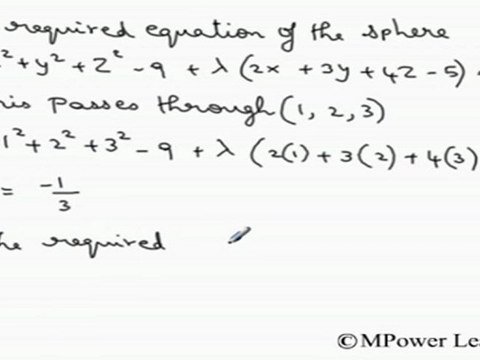 required equation of the sphere
² + y² + z² - 9 + λ (2x + 3y + 4z - 5)
his passes through (1, 2, 3)
1² + 2² + 3² - 9 + λ (2(1) + 3(2) + 4(3)
= -1/3
he required
©MPower Le